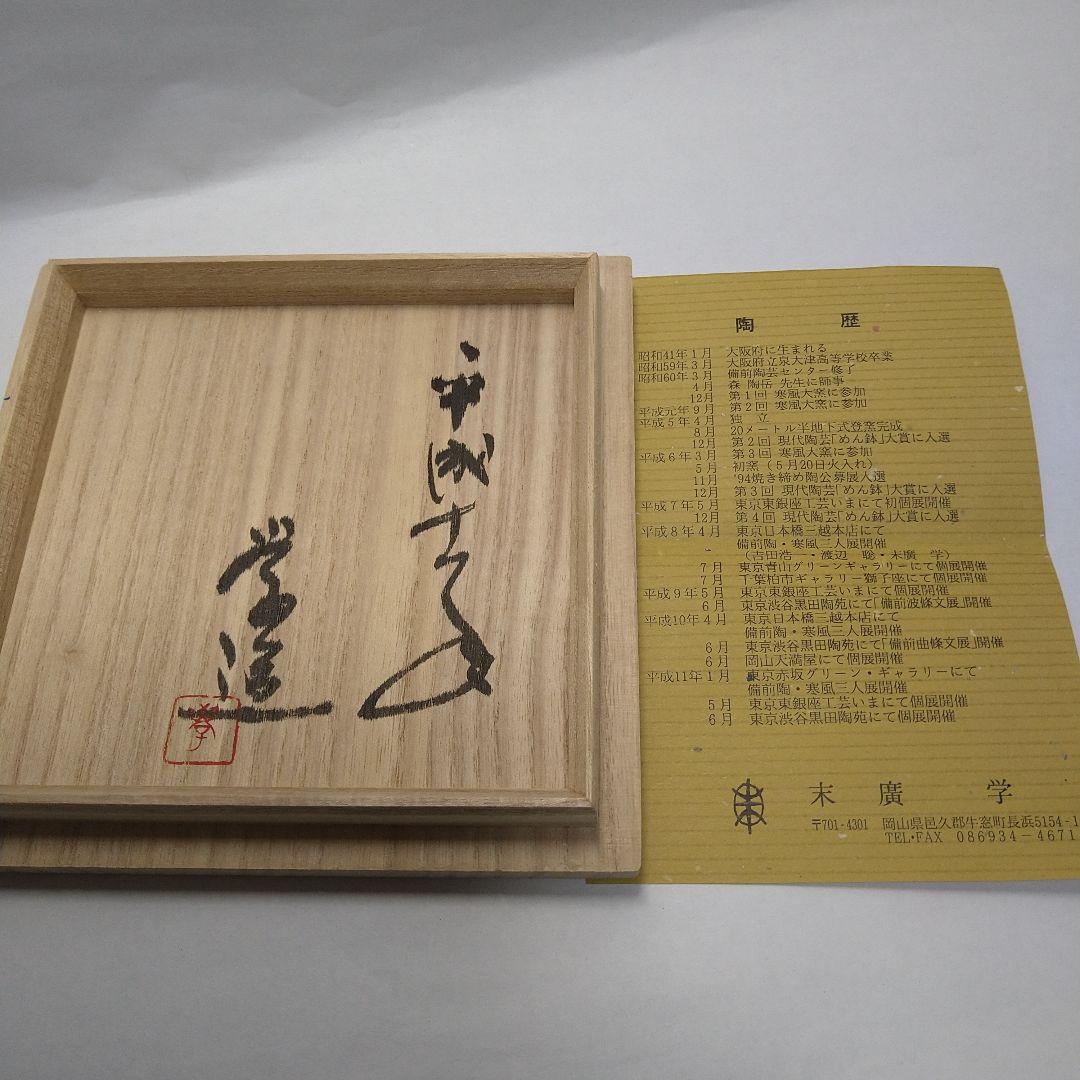 平成十一年
学造
学
陶歴
昭和41年1月 大阪府に生まれる
昭和59年3月 大阪府立泉大津高等学校卒業
昭和60年3月 備前陶芸センター修了
4月 森 陶岳 先生に師事
12月 第1回 寒風大窯に参加
平成元年9月 第2回 寒風大窯に参加
平成5年4月 独立
8月 20メートル半地下式登窯完成
12月 第2回 現代陶芸「めん鉢」大賞に入選
平成6年3月 第3回 寒風大窯に参加
5月 初窯(5月20日火入れ)
11月 '94焼き締め陶公募展入選
12月 第3回 現代陶芸「めん鉢」大賞に入選
平成7年5月 東京東銀座工芸いまにて初個展開催
12月 第4回 現代陶芸「めん鉢」大賞に入選
平成8年4月 東京日本橋三越本店にて
備前陶・寒風三人展開催
(吉田浩一・渡辺 聡・末廣 学)
7月 東京青山グリーンギャラリーにて個展開催
7月 千葉柏市ギャラリー獅子座にて個展開催
平成9年5月 東京東銀座工芸いまにて個展開催
6月 東京渋谷黒田陶苑にて「備前波條文展」開催
平成10年4月 東京日本橋三越本店にて
備前陶・寒風三人展開催
6月 東京渋谷黒田陶苑にて「備前曲條文展」開催
6月 岡山天満屋にて個展開催
平成11年1月 東京赤坂グリーン・ギャラリーにて
備前陶・寒風三人展開催
5月 東京東銀座工芸いまにて個展開催
6月 東京渋谷黒田陶苑にて個展開催
末廣 学
〒701-4301 岡山県邑久郡牛窓町長浜5154-1
TEL・FAX 086934-4671